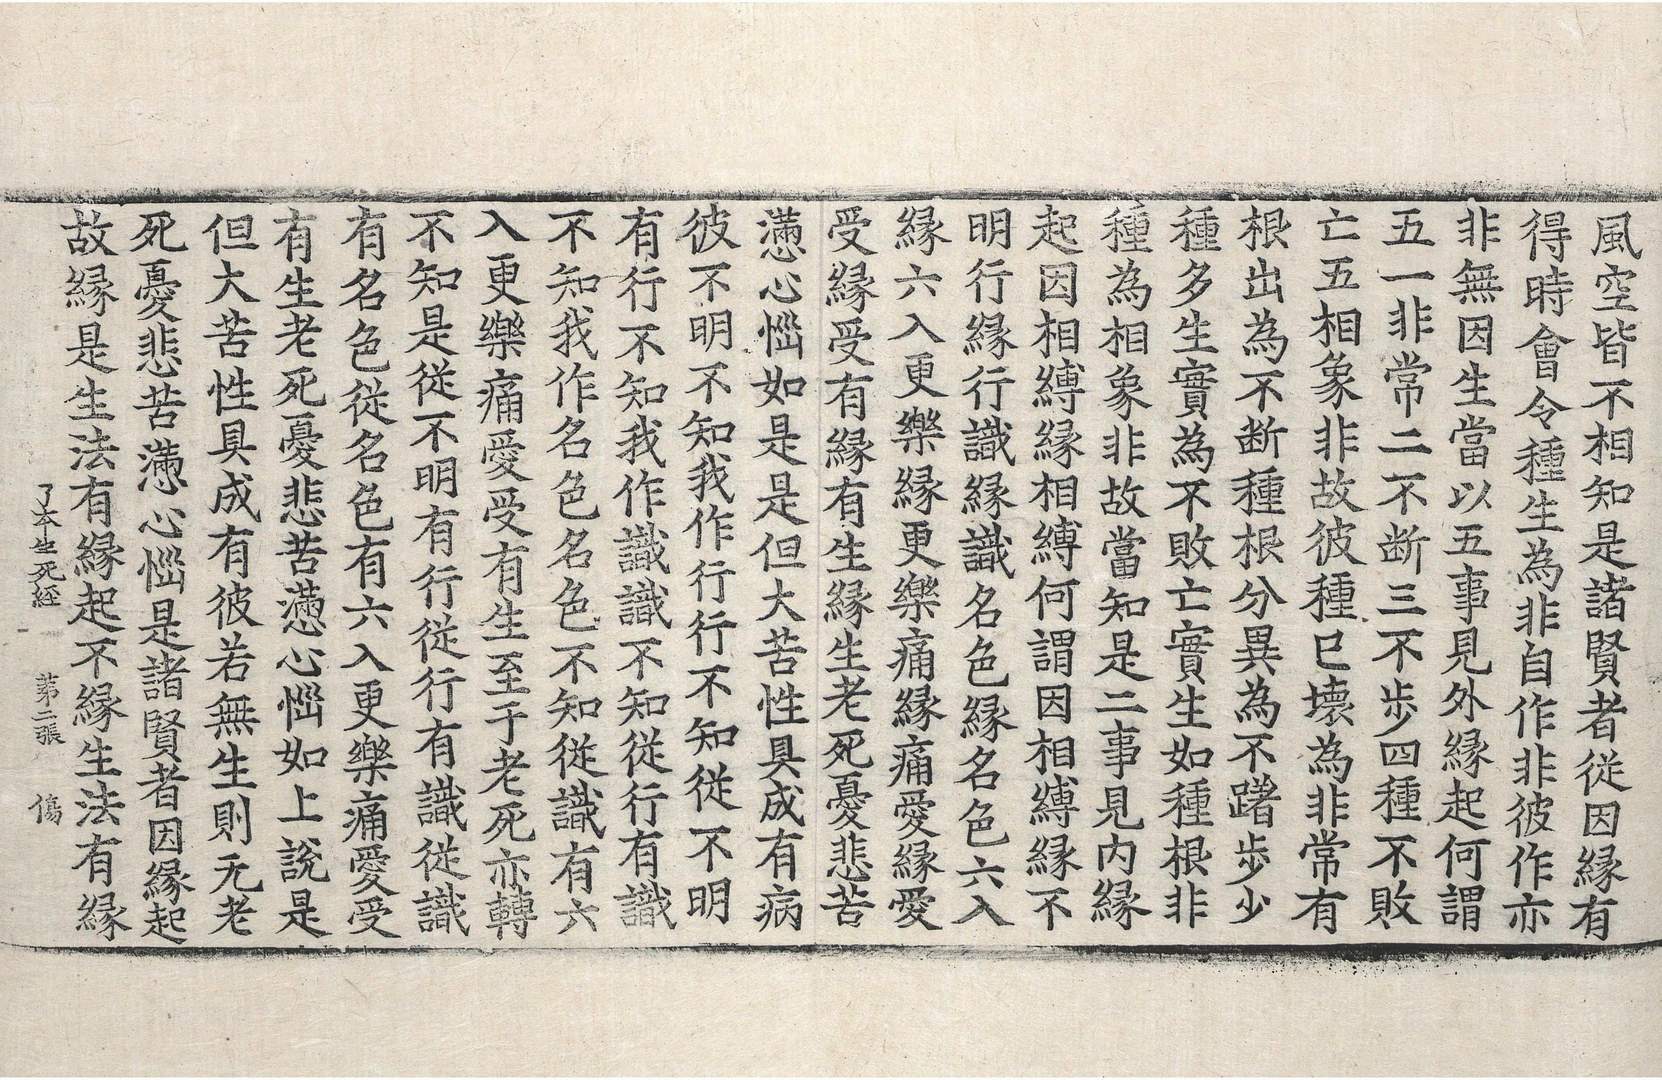 風空皆不相知是諸賢者從因縁有
得時會令種生為非自作非彼作亦
非無因生當以五事見外縁起何謂
五一非常二不断三不步四種不敗
亡五相象非故彼種已壞為非常有
根出為不断種根分異為不躇步少
種多生實為不敗亡實生如種根非
種為相象非故當知是二事見内縁
起因相縛縁相縛何謂因相縛縁不
明行縁行識縁識名色縁名色六入
縁六入更樂縁更樂痛縁痛愛縁愛
受縁受有縁有生縁生老死憂悲苦
懣心惱如是是但大苦性具成有病
彼不明不知我作行行不知從不明
有行不知我作識識不知從行有識
不知我作名色名色不知從識有六
入更樂痛愛受有生至于老死亦轉
不知是從不明有行從行有識從識
有名色從名色有六入更樂痛愛受
有生老死憂悲苦懣心惱如上說是
但大苦性具成有彼若無生則无老
死憂悲苦懣心惱是諸賢者因縁起
故縁是生法有縁起不縁生法有縁
了本生死經　第二張　傷